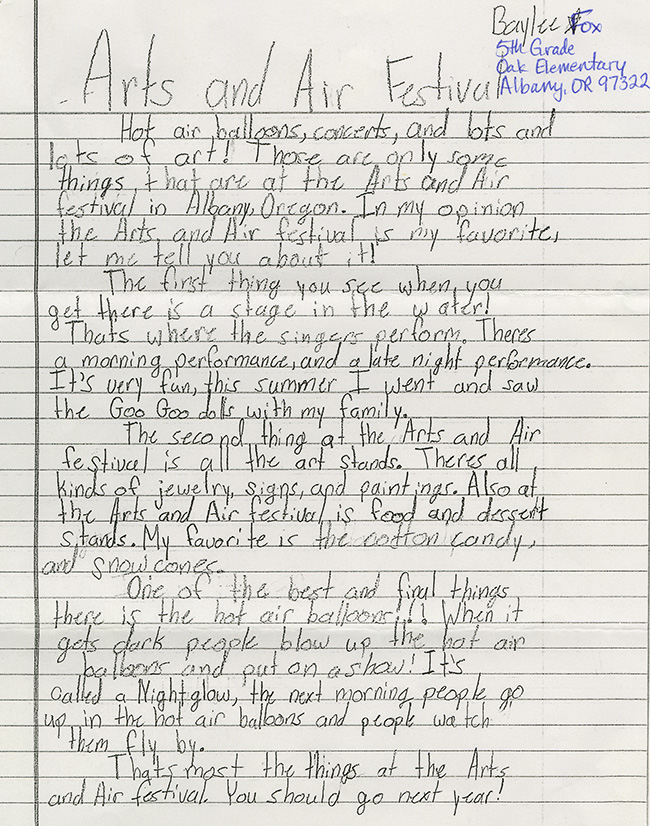 Baylee Fox
5th Grade
Oak Elementary
Albany, OR 97322
Arts and Air Festival
Hot air balloons, concerts, and lots and
lots of art! Those are only some
things, that are at the Arts and Air
festival in Albany, Oregon. In my opinion
the Arts and Air festival is my favorite,
let me tell you about it!
The first thing you see when you
get there is a stage in the water!
Thats where the singers perform. Theres
a morning performance, and a late night performance.
It's very fun, this summer I went and saw
the Goo Goo dolls with my family.
The second thing at the Arts and Air
festival is all the art stands. Theres all
kinds of jewelry, signs, and paintings. Also at
the Arts and Air festival is food and dessert
stands. My favorite is the cotton candy,
and snow cones.
One of the best and final things
there is the hot air balloons!!! When it
gets dark people blow up the hot air
balloons and put on a show! It's
called a Nightglow, the next morning people go
up in the hot air balloons and people watch
them fly by.
That's most the things at the Arts
and Air festival. You should go next year!